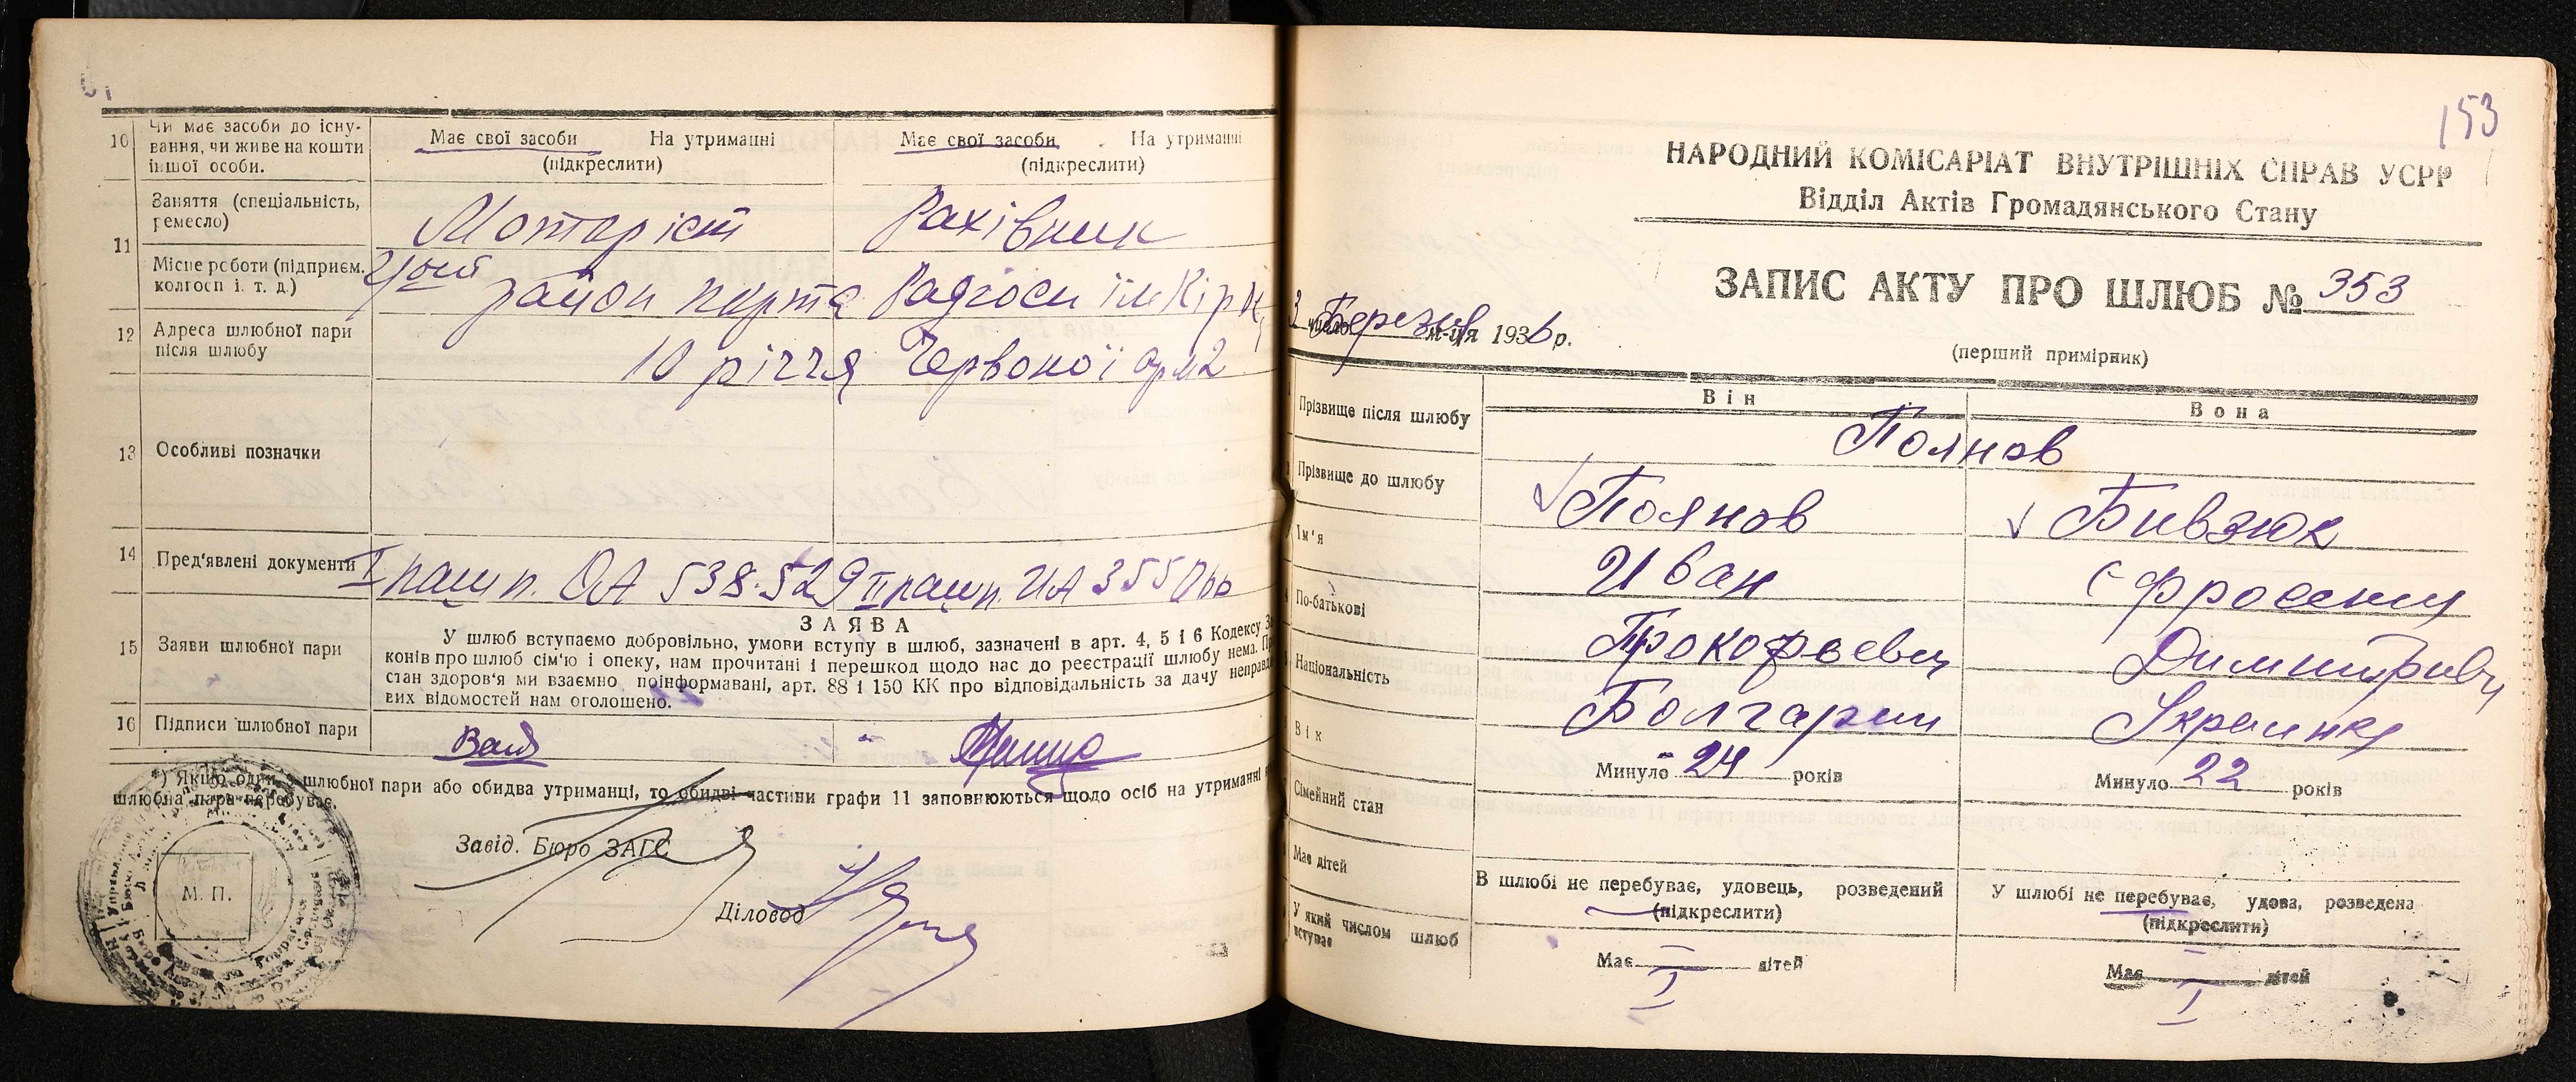 10 Чи має засоби до існування, чи живе на кошти іншої особи.
Має свої засоби На утриманні
(підкреслити)
Має свої засоби На утриманні
(підкреслити)
11 Заняття (спеціальність, ремесло)
Моторіст
Рахівник
Місце роботи (підприєм. колгосп і. т. д.)
район порта
12 Адреса шлюбної пари після шлюбу
10 річчя Червоної арм
13 Особливі позначки
14 Пред'явлені документи
I пашп. ОА 538.529 II пашп. ИА
15 Заяви шлюбної пари
ЗАЯВА
У шлюб вступаємо добровільно, умови вступу в шлюб, зазначені в арт. 4, 5 і 6 Кодексу
конів про шлюб сім'ю і опеку, нам прочитані і перешкод щодо нас до реєстрації шлюбу нема.
стан здоров'я ми взаємно поінформавані, арт. 88 і 150 КК про відповідальність за дачу неправди
вих відомостей нам оголошено.
16 Підписи шлюбної пари
) Якщо один з шлюбної пари або обидва утриманці, то обидві частини графи 11 заповнюються щодо осіб на утриманні
шлюбна пара перебуває.
Завід. Бюро ЗАГС
Діловод
М. П.
153
НАРОДНИЙ КОМІСАРІАТ ВНУТРІШНІХ СПРАВ УСРР
Відділ Актів Громадянського Стану
ЗАПИС АКТУ ПРО ШЛЮБ № 353
3 число Березня м-ця 1936 р.
(перший примірник)
Він
Вона
Прізвище після шлюбу
Поянов
Прізвище до шлюбу
Поянов
Бивзюк
Ім'я
Иван
По-батькові
Прокофьевич
Національність
Болгарин
Украинка
Вік
Минуло 24 років
Минуло 22 років
Сімейний стан
В шлюбі не перебуває, удовець, розведений
(підкреслити)
У шлюбі не перебуває, удова, розведена
(підкреслити)
Має дітей
Має — дітей
Має — дітей
У який числом шлюб вступає
I
I